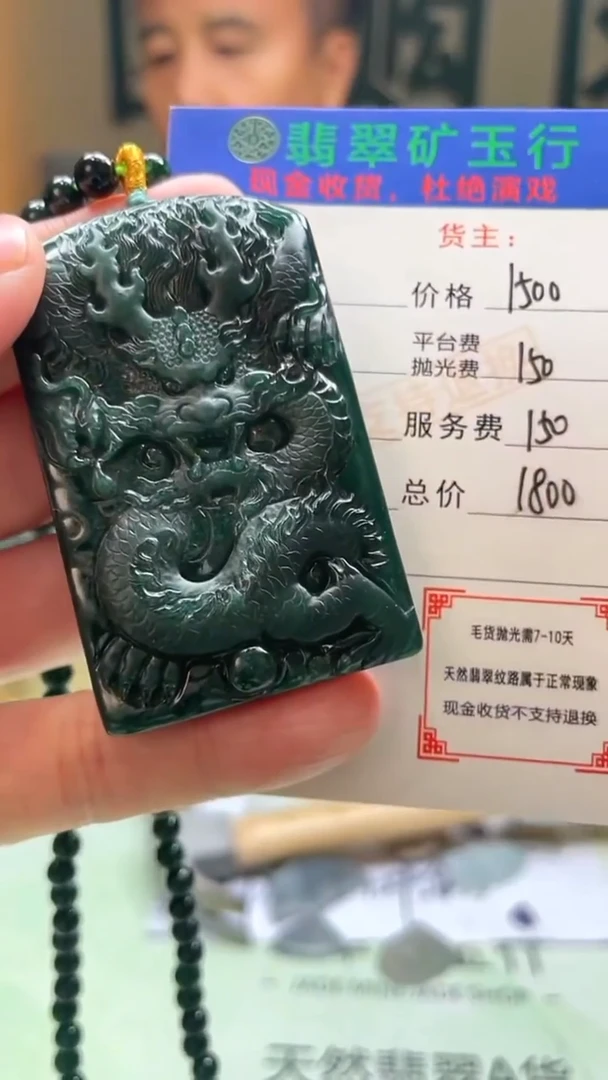 翡翠矿玉行
现金收货，杜绝演戏
货主：
价格 1500
平台费
抛光费 150
服务费 150
总价 1800
毛货抛光需7-10天
天然翡翠纹路属于正常现象
现金收货不支持退换
天然翡翠A货